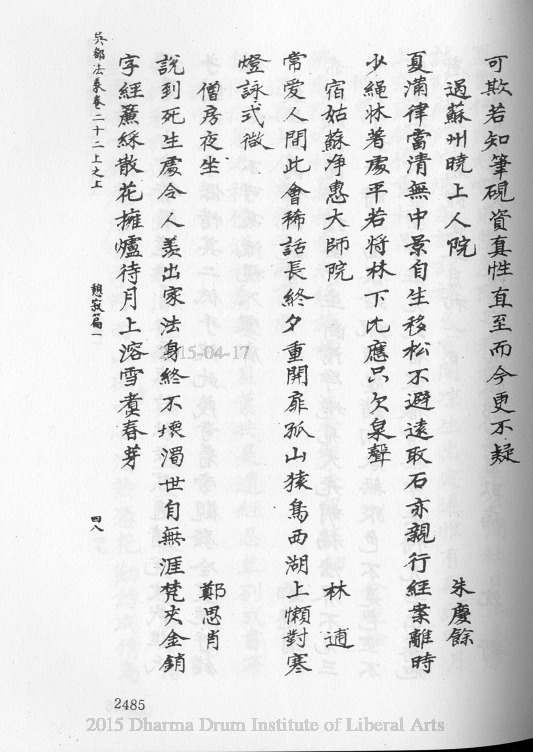 可欺若知筆硯資真性直至而今更不疑
過蘇州曉上人院 朱慶餘
夏滿律當清無中景自生移松不避遠取石亦親行經案離時
少繩牀著處平若將林下比應只欠泉聲
宿姑蘇淨惠大師院 林逋
常愛人間此會稀話長終夕重開扉孤山猿鳥西湖上懶對寒
燈詠式微
僧房夜坐 鄭思肖
說到死生處令人羨出家法身終不壞濁世自無涯梵夾金銷
字經簾綵散花擁爐待月上溶雪煑春芽
吳都法乘卷二十二上之上 憩寂篇一 四八
2485
2015-04-17
2015 Dharma Drum Institute of Liberal Arts